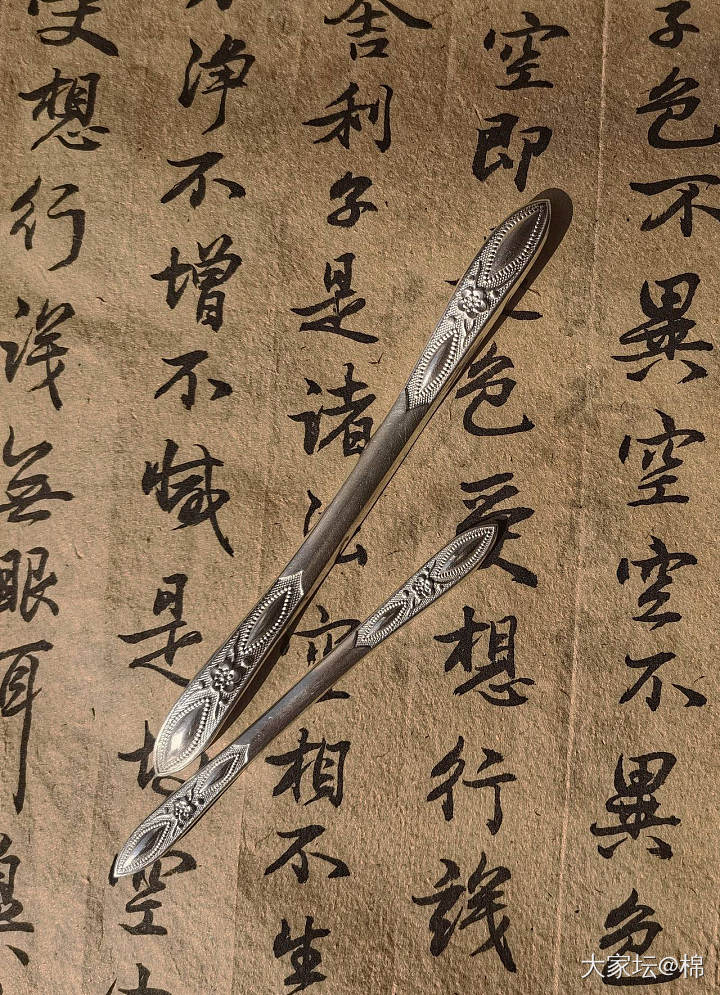 子色不異空空不異色
空即色受想行識
舍利子是諸法空相不生
淨不增不減是故空中
受想行識無眼耳鼻
大家坛@棉